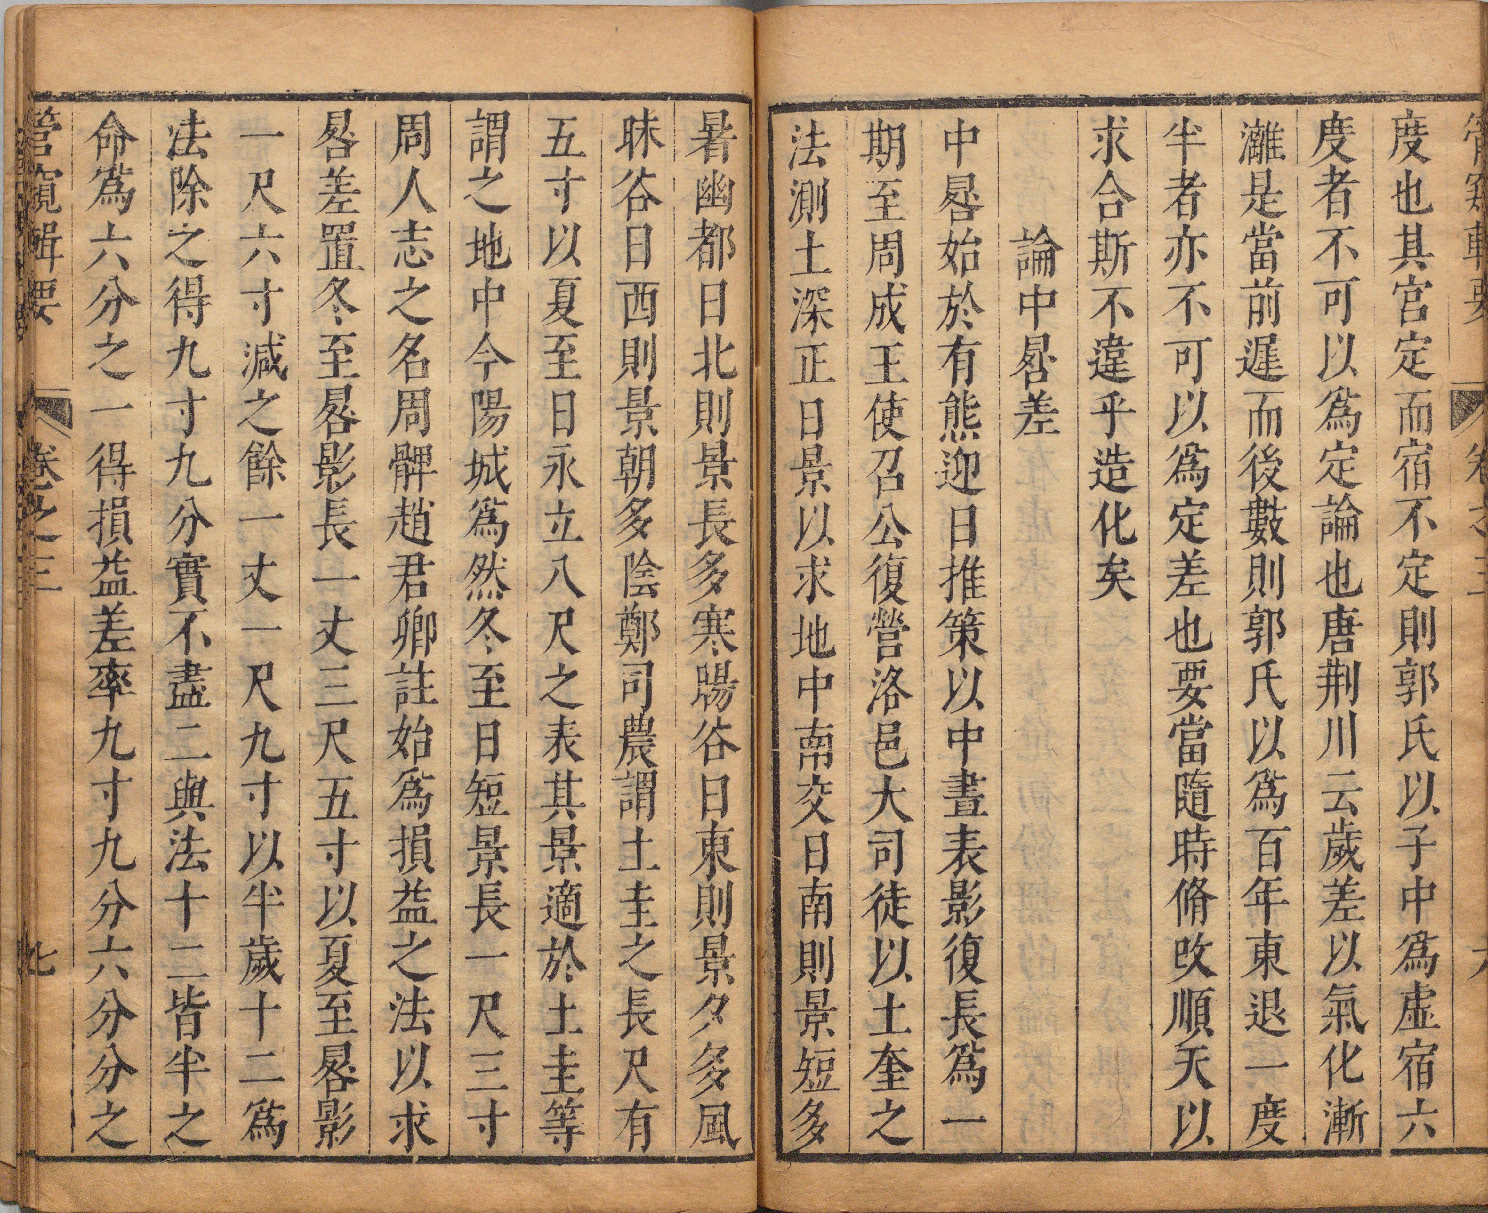 管窺輯要
卷之三
六
度也其宮定而宿不定則郭氏以子中為虛宿六
度者不可以為定論也唐荆川云歲差以氣化漸
灕是當前遲而後數則郭氏以為百年東退一度
半者亦不可以為定差也要當隨時脩改順天以
求合斯不違乎造化矣
論中晷差
中晷始於有熊迎日推策以中晝表影復長為一
期至周成王使召公復營洛邑大司徒以土奎之
法測土深正日景以求地中南交日南則景短多
暑幽都日北則景長多寒暘谷日東則景夕多風
昧谷日西則景朝多陰鄭司農謂土圭之長尺有
五寸以夏至日永立八尺之表其景適於土圭等
謂之地中今陽城為然冬至日短景長一尺三寸
周人志之名周髀趙君卿註始為損益之法以求
晷差置冬至晷影長一丈三尺五寸以夏至晷影
一尺六寸減之餘一丈一尺九寸以半歲十二為
法除之得九寸九分實不盡二與法十二皆半之
命為六分之一得損益差率九寸九分六分分之
管窺輯要
卷之三
七